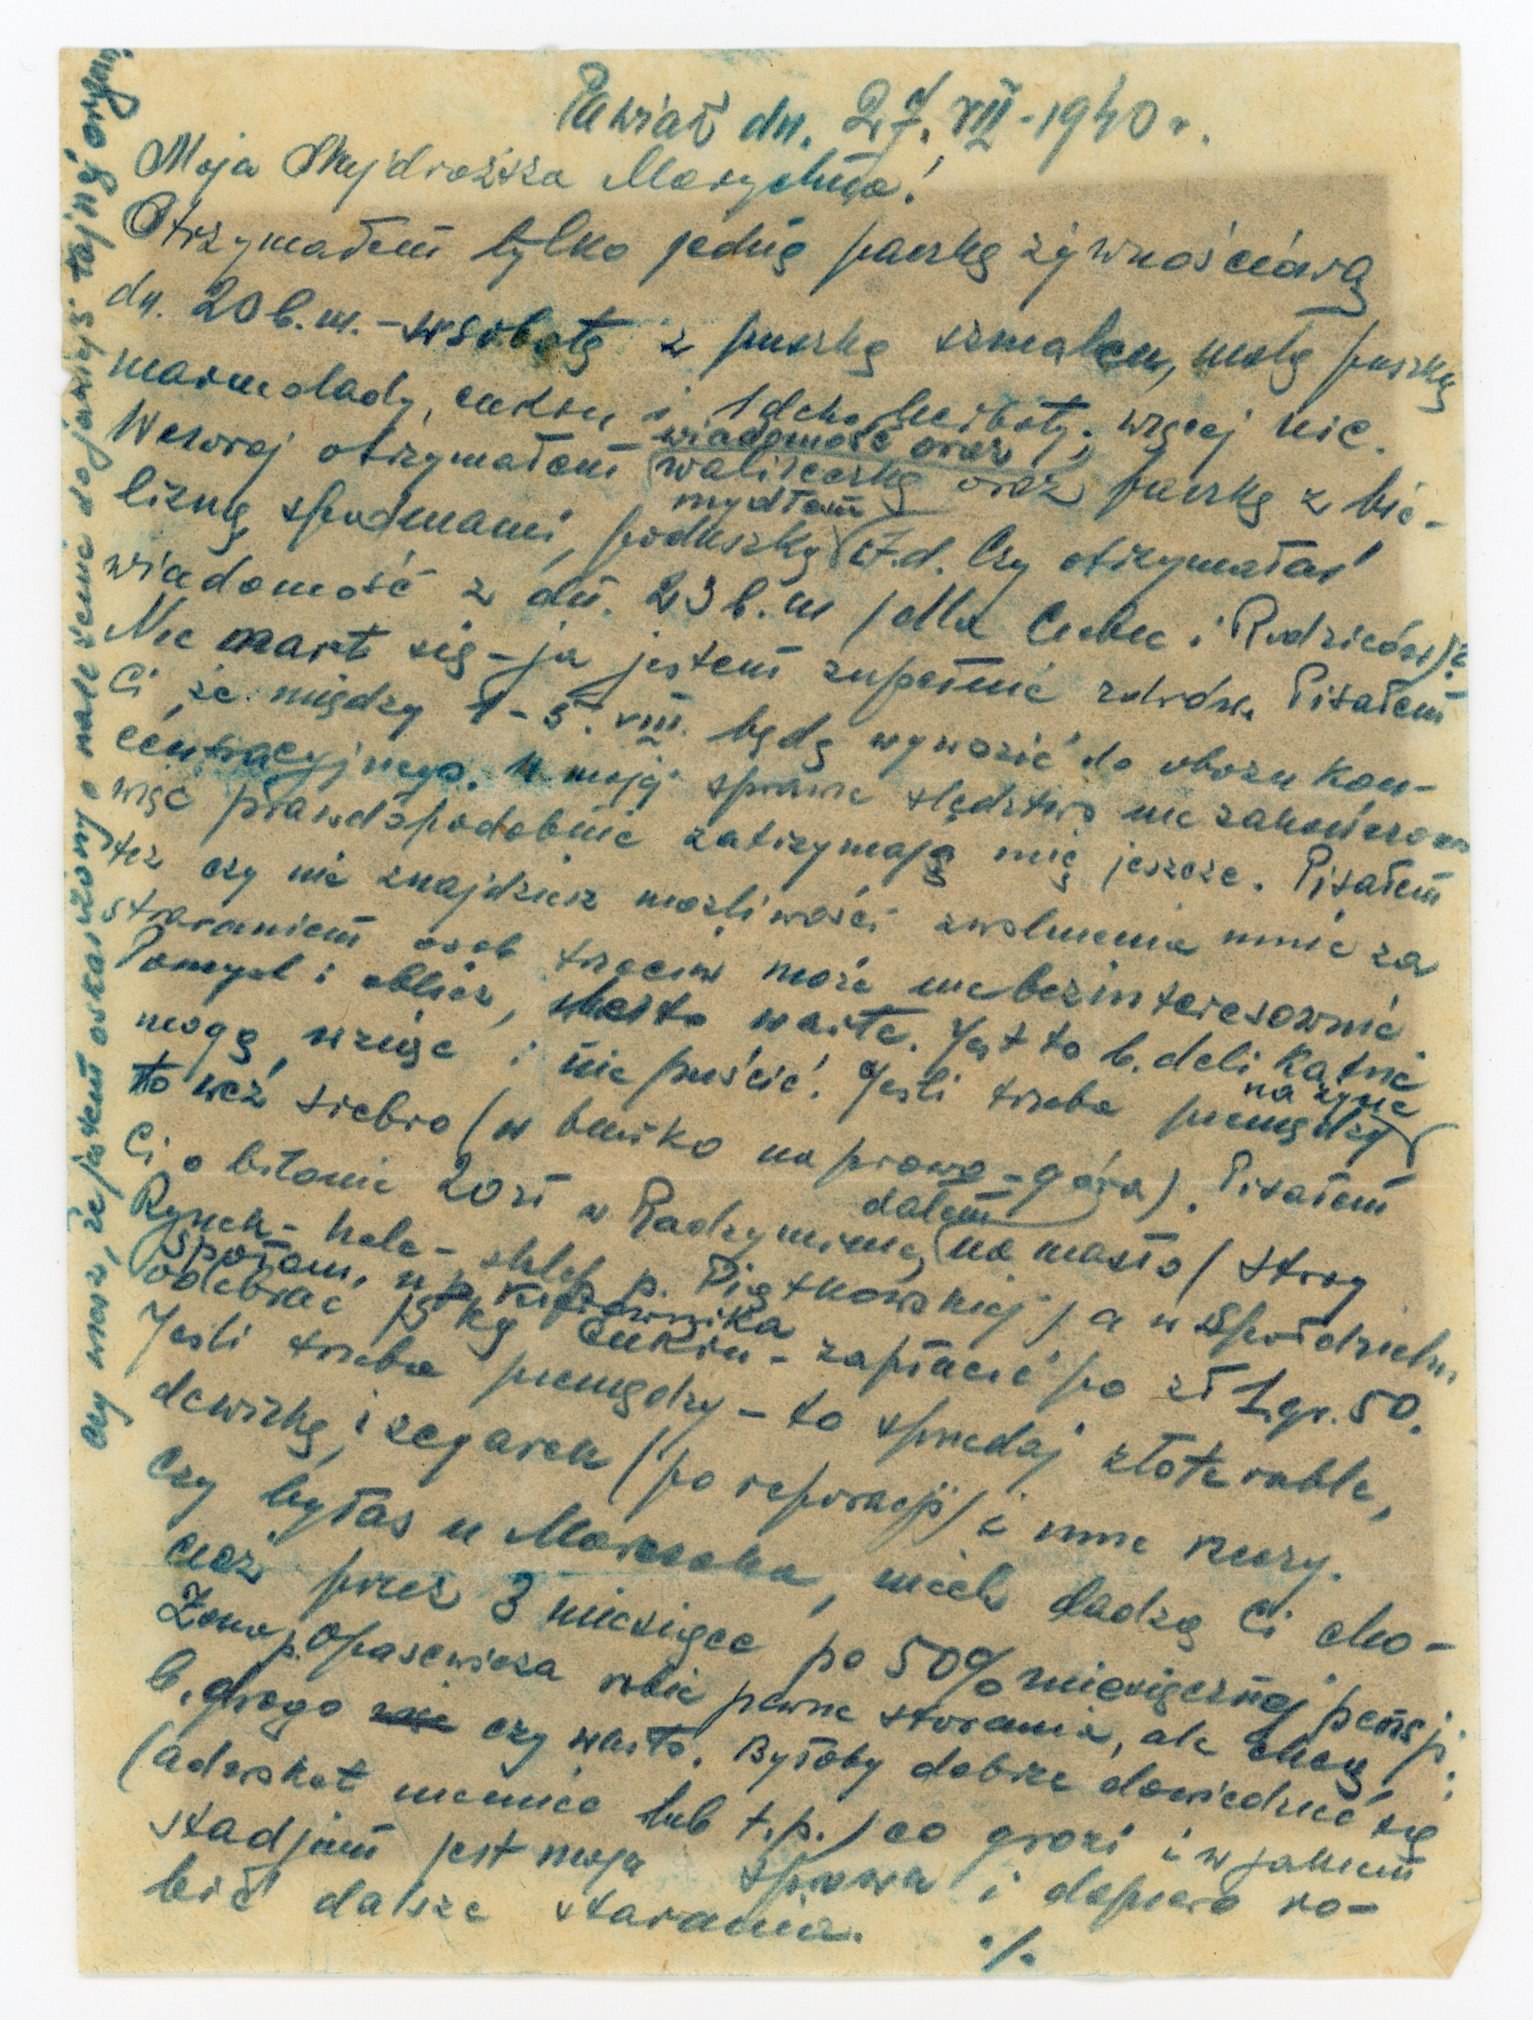 Pawiak dn. 27. VII - 1940 r.
Moja Najdroższa Marychna!
Otrzymałem tylko jedną paczkę żywnościową
dn. 20 b.m. - w sobotę z puszką szmalcu, małą puszką
marmolady, cukru i herbaty, więcej nic.
Wczoraj otrzymałem wiadomość oraz walizeczkę oraz paczkę z bie-
lizną, spodniami, poduszką mydłem i t.d. Czy otrzymałaś
wiadomość z dn. 23 b.m (dla Ciebie i Rodziców)?
Nie mart się - ja jestem zupełnie zdrów. Pisałem
Ci że między 1 - 5. VIII. będą wywozić do obozu kon-
centracyjnego. W moją sprawie śledztwo nie zakończono
więc prawdopodobnie zatrzymają mię jeszcze. Pisałem
też czy nie znajdziesz możliwości zwolnienia mnie za
staraniem osób trzecich może nie bezinteresownie
Pomyśl i oblicz, warto. Jest to b. delikatne
mogą wziąć i nie puścić. Jeśli trzeba pieniędzy na życie
to weź srebro (w biurko na prawo - góra). Pisałem
Ci o 20 zł w Radzyminie, dałem na masło (Stary
Rynek - hale - sklep p. Piątkowskiej) a w Spółdzielni
Społem, u p. Kierownika
odebrać 15 kg cukru - zapłacić po zł 1.gr. 50.
Jeśli trzeba pieniędzy - to sprzedaj złote ruble,
dewizkę i zegarek (po reparacji) i inne rzeczy.
Czy byłaś u , niech dadzą Ci cho-
ciaż przez 3 miesiące po 50% miesięcznej pensji.
Żona p. Opasewicza robi pewne starania, ale chcą
b. drogo czy warto. Byłoby dobrze dowiedzieć się
(adwokat niemiec lub t.p.) co grozi i w jakiem
stadjum jest moja sprawa i dopiero ro-
bić dalsze starania.
./.
czy wiesz, że jestem oskarżony o należenie do jakiejś tajnej organiz.